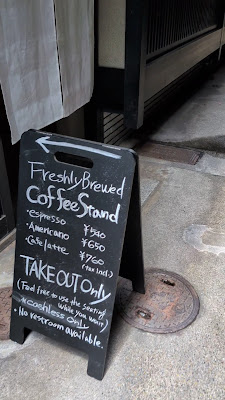 Freshly Brewed
Coffee Stand
・espresso ¥540
・Americano ¥650
・Cafe latte ¥760
(tax incl.)
TAKE OUT Only
(Feel free to use the seating
while you wait)
※cashless Only
・No restroom available.